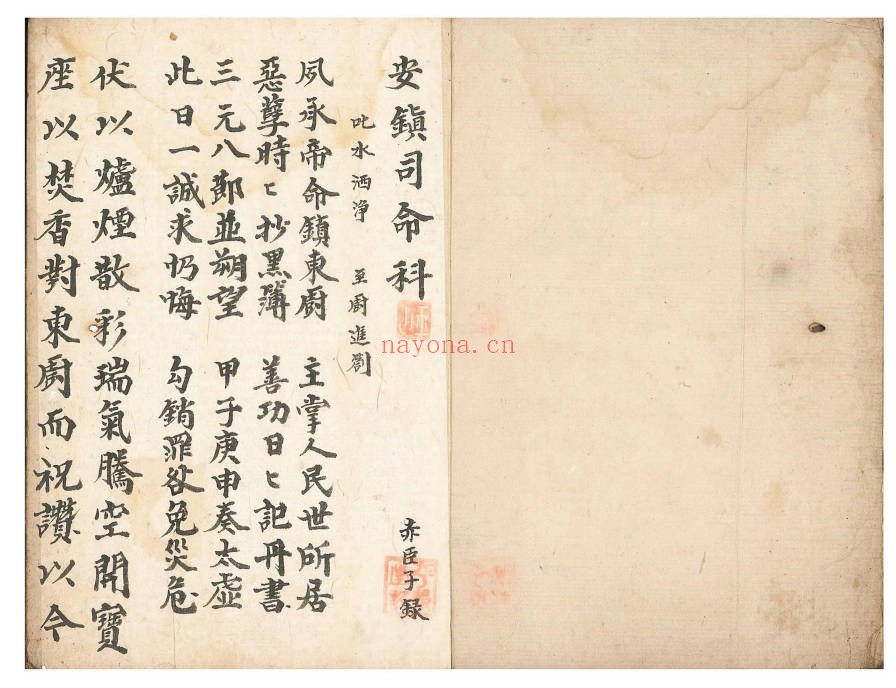 安鎮司命科
赤臣子録
叱水洒淨 至厨進劄
夙承帝命鎮東廚 主掌人民世所居
惡孽時〻抄黑簿 善功日〻記丹書
三元八節並朔望 甲子庚申奏太虛
此日一誠求忏悔 勾銷罪愆免災危
伏以爐煙散彩瑞氣騰空開寶
座以焚香對東廚而祝讚以今
nayona.cn